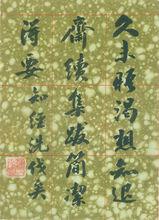 久未晤渴想知退
齋續集跋簡潔
得要 知經洗伐矣